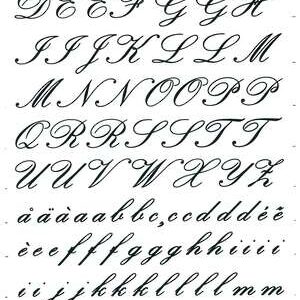 D E E F G G H
I I J K L L M
M N N O O P P
Q R R R S S T T
U U V W X Y Z
å ä à a b b c , c c d d d é ë
è e e f f f g g g h h i i i i
i i j j k k l l l l m m